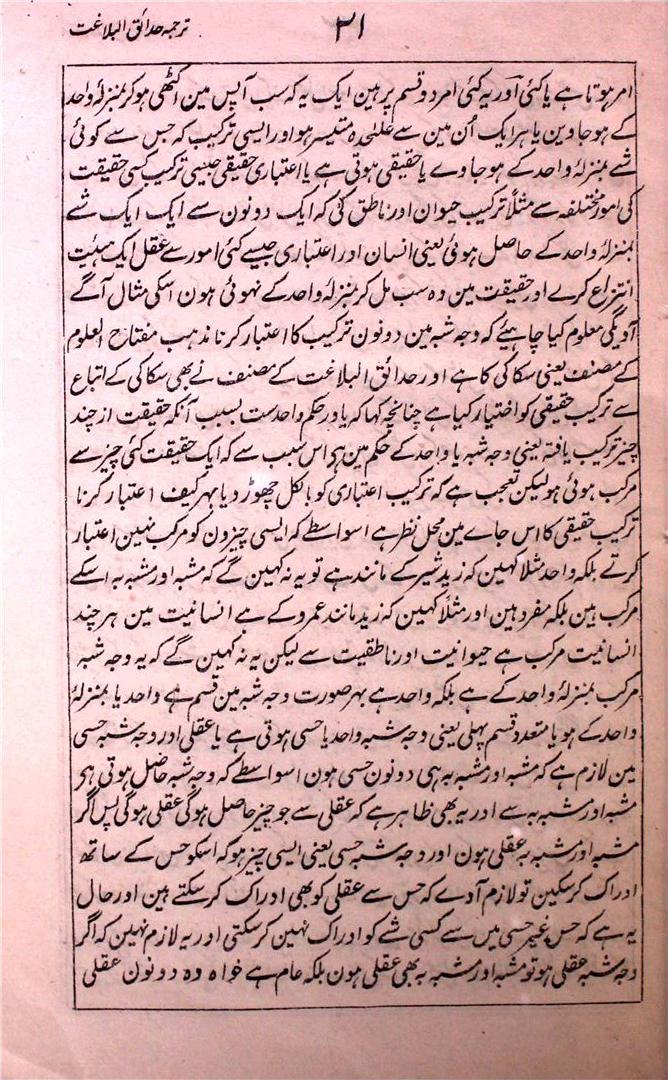 ۳۱
ترجمہ حدائق البلاغت
امر ہوتا ہے یا کئی اور یہ کئی امر دو قسم پر ہین ایک یہ کہ سب آپس مین اکٹھی ہو کر بمنزلۂ واحد
کے ہو جاوین یا ہر ایک اُن مین سے علٰحدہ متیسر ہو اور ایسی ترکیب کہ جس سے کوئی
شے بمنزلۂ واحد کے ہو جاوے یا حقیقی ہوتی ہے یا اعتباری حقیقی جیسی ترکیب کسی حقیقت
کی امور مختلفہ سے مثلاً ترکیب حیوان اور ناطق کی کہ ایک دونون سے ایک ایک شے
بمنزلۂ واحد کے حاصل ہوئی یعنی انسان اور اعتباری جیسے کئی امور سے عقل ایک ہیئیت
انتزاع کرے اور حقیقت مین وہ سب مل کر بمنزلۂ واحد کے نہوئی ہون اسکی مثال آگے
آویگی معلوم کیا چاہیئے کہ وجہ شبہ مین دونون ترکیب کا اعتبار کرنا مذہب مفتاح العلوم
کے مصنف یعنی سکاکی کا ہے اور حدائق البلاغت کے مصنف نے بھی سکاکی کے اتباع
سے ترکیب حقیقی کو اختیار کیا ہے چنانچہ کہا کہ یا در حکم واحدست بسبب آنکہ حقیقت از چند
چیز ترکیب یافتہ یعنی وجہ شبہ یا واحد کے حکم مین ہی اس سبب سے کہ ایک حقیقت کئی چیز سے
مرکب ہوئی ہو لیکن تعجب ہے کہ ترکیب اعتباری کو بالکل چھوڑ دیا بہر کیف اعتبار کرنا
ترکیب حقیقی کا اس جاے مین محل نظر ہے اسواسطے کہ ایسی چیزون کو مرکب نہین اعتبار
کرتے بلکہ واحد مثلا کہین کہ زید شیر کے مانند ہے تو یہ نہ کہین گے کہ مشبہ اور مشبہ بہ اسکے
مرکب ہین بلکہ مفرد ہین اور مثلاً کہین کہ زید مانند عمرو کے ہے انسانیت مین ہر چند
انسانیت مرکب ہے حیوانیت اور ناطقیت سے لیکن یہ نہ کہین گے کہ یہ وجہ شبہ
مرکب بمنزلۂ واحد کے ہے بلکہ واحد ہے بہر صورت وجہ شبہ مین قسم ہے واحد یا بمنزلۂ
واحد کے ہو یا متعدد قسم پہلی یعنی وجہ شبہ واحد یا حسی ہوتی ہے یا عقلی اور وجہ شبہ حسی
مین لازم ہے کہ مشبہ اور مشبہ بہ ہی دونون حسی ہون اسواسطے کہ وجہ شبہ حاصل ہوتی ہی
مشبہ اور مشبہ بہ سے اور یہ بھی ظاہر ہے کہ عقلی سے جو چیز حاصل ہوگی عقلی ہوگی پس اگر
مشبہ اور مشبہ بہ عقلی ہون اور وجہ شبہ حسی یعنی ایسی چیز ہو کہ اسکو حس کے ساتھ
ادراک کر سکین تو لازم آوے کہ حس سے عقلی کو بھی ادراک کر سکتے ہین اور حال
یہ ہے کہ حس غیر حسی میں سے کسی شے کو ادراک نہین کر سکتی اور یہ لازم نہین کہ اگر
وجہ شبہ عقلی ہو تو مشبہ اور مشبہ بہ بھی عقلی ہون بلکہ عام ہے خواہ وہ دونون عقلی